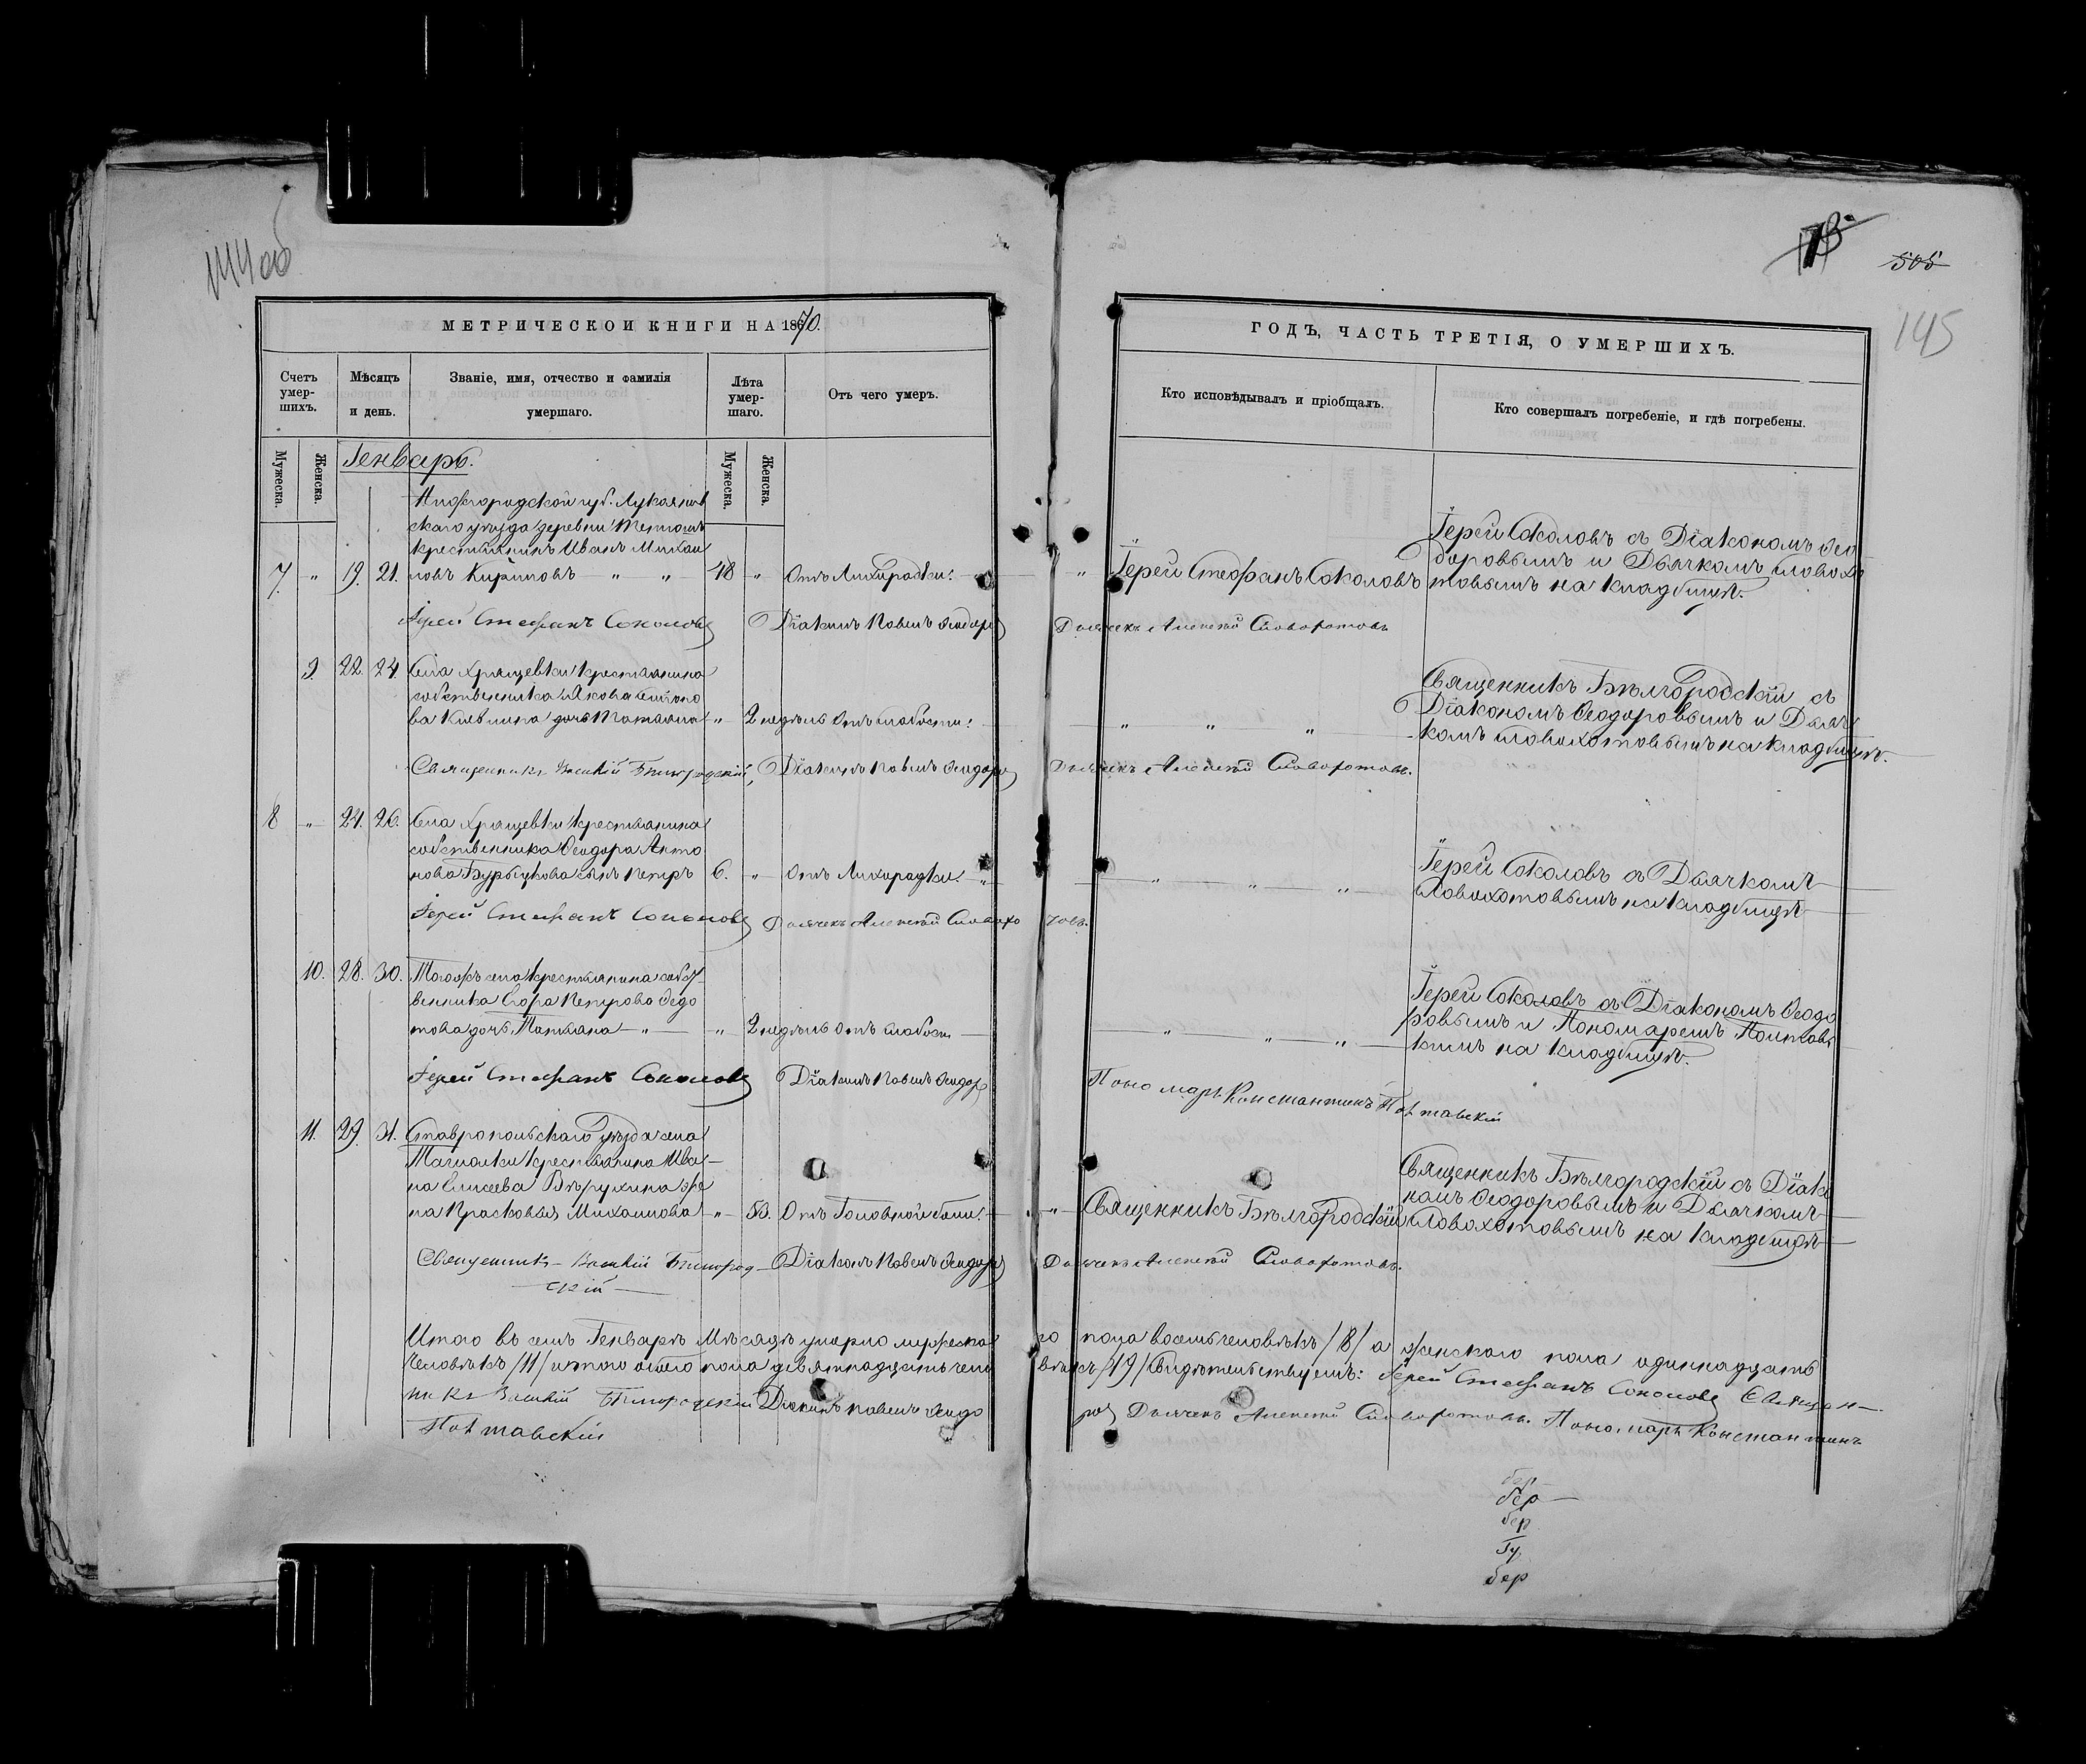 144 об
МЕТРИЧЕСКОЙ КНИГИ НА 1870.
Счетъ умер-шихъ.
Мѣсяцъ и день.
Званіе, имя, отчество и фамилія умершаго.
Лѣта умер-шаго.
Отъ чего умеръ.
Мужеска.
Женска.
Мужеска.
Женска.
Генварь.
Нижгородской губ. Лукоянов
скаго уѣзда деревни
крестьянинъ Иванъ Михаи
7. " 19. 21. ловъ Кириловъ — " " — 48 " Отъ Лихорадки.
Іерей Стефанъ Соколовъ Діаконъ Павелъ Ѳеодоро
9. 22. 24. Села Хрящевки крестьянина
собственника Якова
дочь Татіана " 2 недѣль Отъ слабости.
Священникъ Василій Бѣлгородскій, Діаконъ Павелъ Ѳеодоро
8 " 24. 26. Села Хрящевки крестьянина
собственника Ѳеодора Анто
нова Бурцукова сынъ Петръ 6. " Отъ Лихорадки. "
Іерей Стефанъ Соколовъ Дьячекъ Алексѣй Словохо
10. 28. 30. Тогожъ села крестьянина собст
венника Егора Петрова Ѳедо
това дочь Татіана — " — " 2 недѣль Отъ слабости
Іерей Стефанъ Соколовъ Діаконъ Павелъ Ѳеодор
11. 29. 31. Ставропольскаго уѣзда села
Ташолки крестьянина Ива-
на Елисеева Вѣрухина же
на Прасковья Михаилова " 53. Отъ Головной боли.
Священникъ Василій Бѣлгород- Діаконъ Павелъ Ѳеодоро
скій
Итого въ семъ Генварѣ Мѣсяцѣ умерло мужеска
человѣкъ /11/ итого обоего пола девятнадцать чело
никъ Василій Бѣлгородскій Діаконъ Павелъ Ѳеодо
Полтавскій
505
145
ГОДЪ, ЧАСТЬ ТРЕТІЯ, О УМЕРШИХЪ.
Кто исповѣдывалъ и пріобщалъ.
Кто совершалъ погребеніе, и гдѣ погребены.
Іерей Соколовъ съ Діакономъ Ѳео
доровымъ и Дьячкомъ Словохо
" Іерей Стефанъ Соколовъ товымъ на кладбищѣ.
Дьячекъ Алексѣй Словохотовъ
Священникъ Бѣлгородскій съ
Діакономъ Ѳеодоровымъ и Дьяч
" " " комъ Словохотовымъ на кладбищѣ.
Дьячекъ Алексѣй Словохотовъ.
Іерей Соколовъ съ Дьячкомъ
" " " Словохотовымъ на кладбищѣ
товъ.
Іерей Соколовъ съ Діакономъ Ѳеодо
ровымъ и Пономаремъ Полтавс
" " " кимъ на кладбищѣ.
Пономарь Константинъ Полтавскій
Священникъ Бѣлгородскій съ Діако
номъ Ѳеодоровымъ и Дьячкомъ
" Священникъ Бѣлгородскій Словохотовымъ на кладбищѣ
Дьячекъ Алексѣй Словохотовъ.
го пола восемь человѣкъ /8/ а женскаго пола одиннадцать
вѣкъ /19/ Свидѣтельствуемъ: Іерей Стефанъ Соколовъ Священ-
ровъ Дьячекъ Алексѣй Словохотовъ. Пономарь Константинъ
бер
бер
бер
Гу
бер